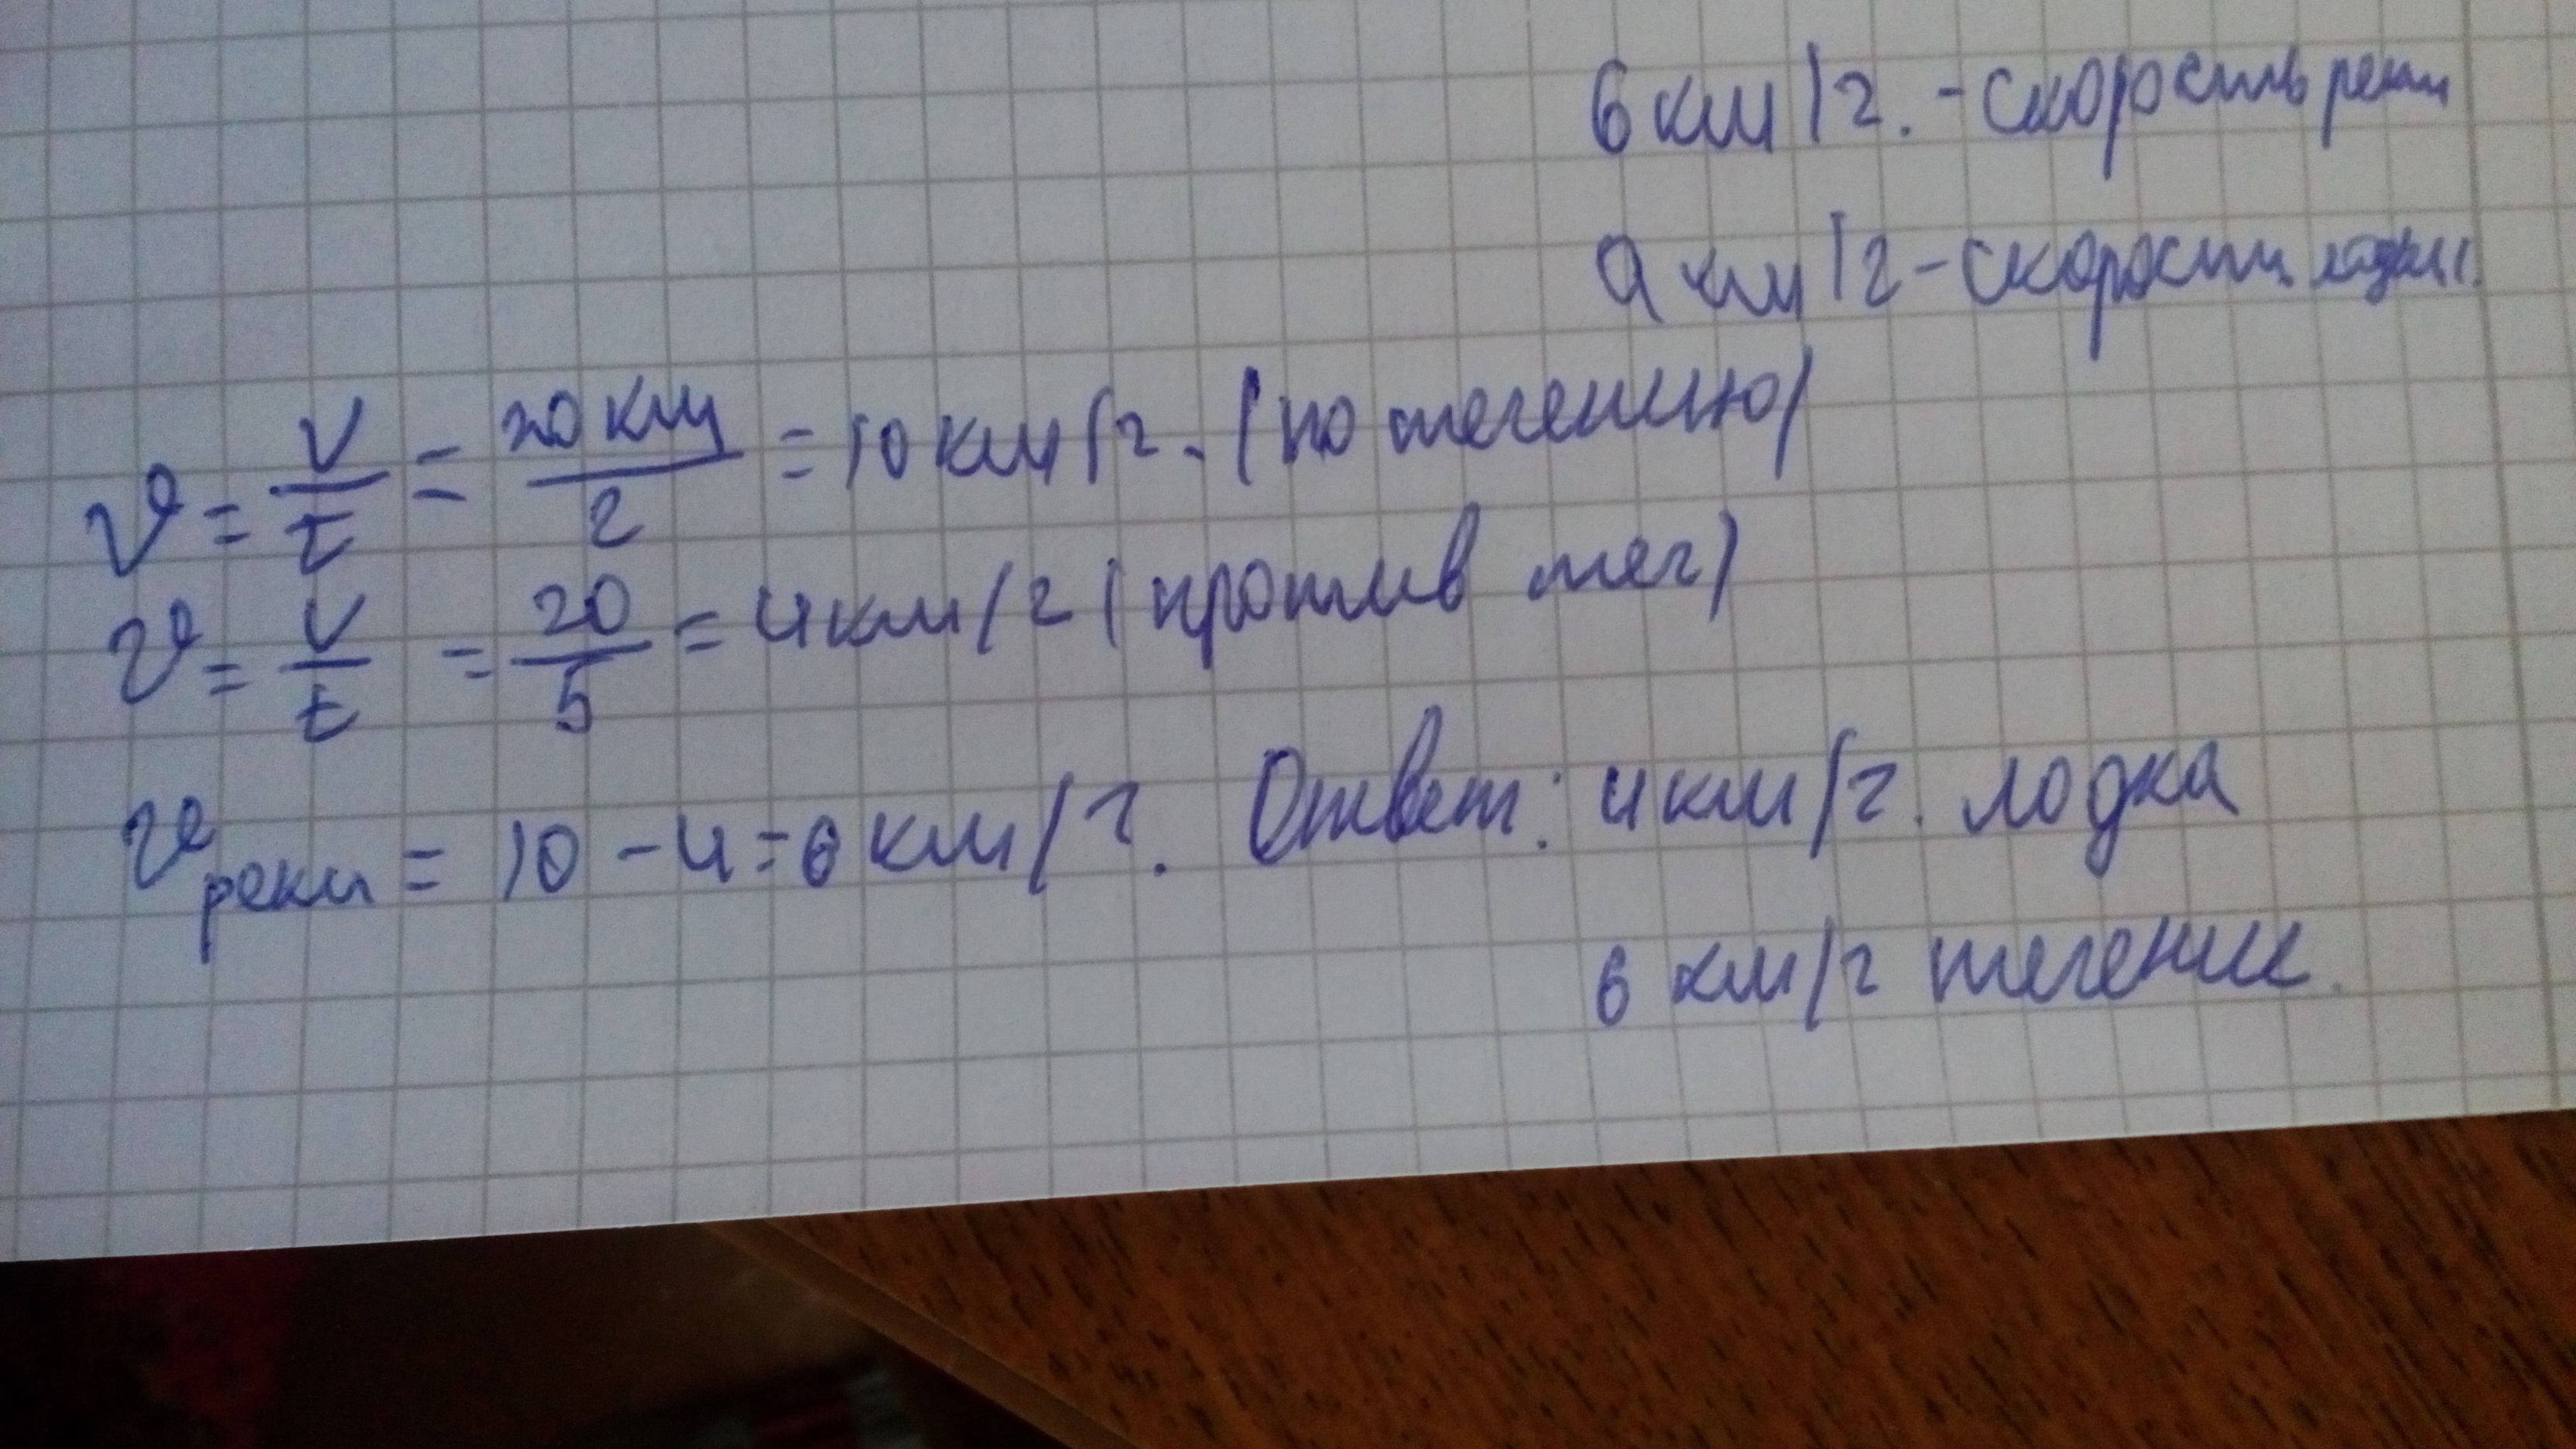 6 км/ч. - скорость реки
9 км/ч - скорости лодки
v = V/t = 20 км/2 = 10 км/ч. (по течению)
v = V/t = 20/5 = 4 км/ч (против теч)
v реки = 10 - 4 = 6 км/ч. Ответ: 4 км/ч. лодка
6 км/ч течение.